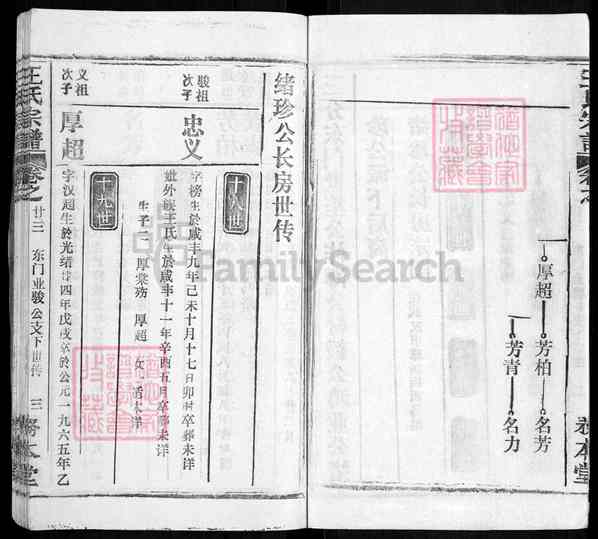 王氏宗譜
卷之
厚超
芳柏
名芳
芳青
名力
务本堂
绪珍公长房世传
十八世
骏祖次子
忠义
字榜生於咸丰九年己未十月十七日卯时卒葬未详
妣外族王氏生於咸丰十一年辛酉五月卒葬未详
生子二 厚棠殇 厚超 女 香未详
十九世
义祖次子
厚超
字汉超生於光绪廿四年戊戌卒於公元一九六五年乙
王氏宗譜
卷之
廿三 东门业骏公支下世传 三
務本堂
FamilySearch